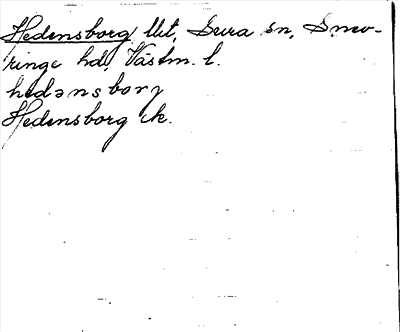 Hedensborg llt, Sura sn, Snev-
ringe hd, Västm. l.
hedənsborj
Hedensborg ek.